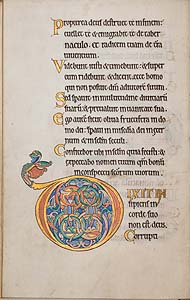 Propterea deus destruet te infinem:
euellet te & emigrabit te de taber
naculo. et radicem tuam de terra
uiuentium.
Videbunt iusti & timebunt: & super
eum ridebunt & dicent. ecce homo
qui non posuit deum adiutorem suum.
Sed sperauit in multitudine diuitiarum
suarum: & preualuit in uanitate sua.
Ego autem sicut oliua fructifera in do
mo dei: speraui in misericordia dei
eternum et in seculum seculi.
Confitebor tibi in seculum quia fecisti: &
expectabo nomen tuum quoniam bonum
in conspectu sanctorum tuorum.
DIXIT IN
sipiens in
corde suo
non est deus.
Corrupti